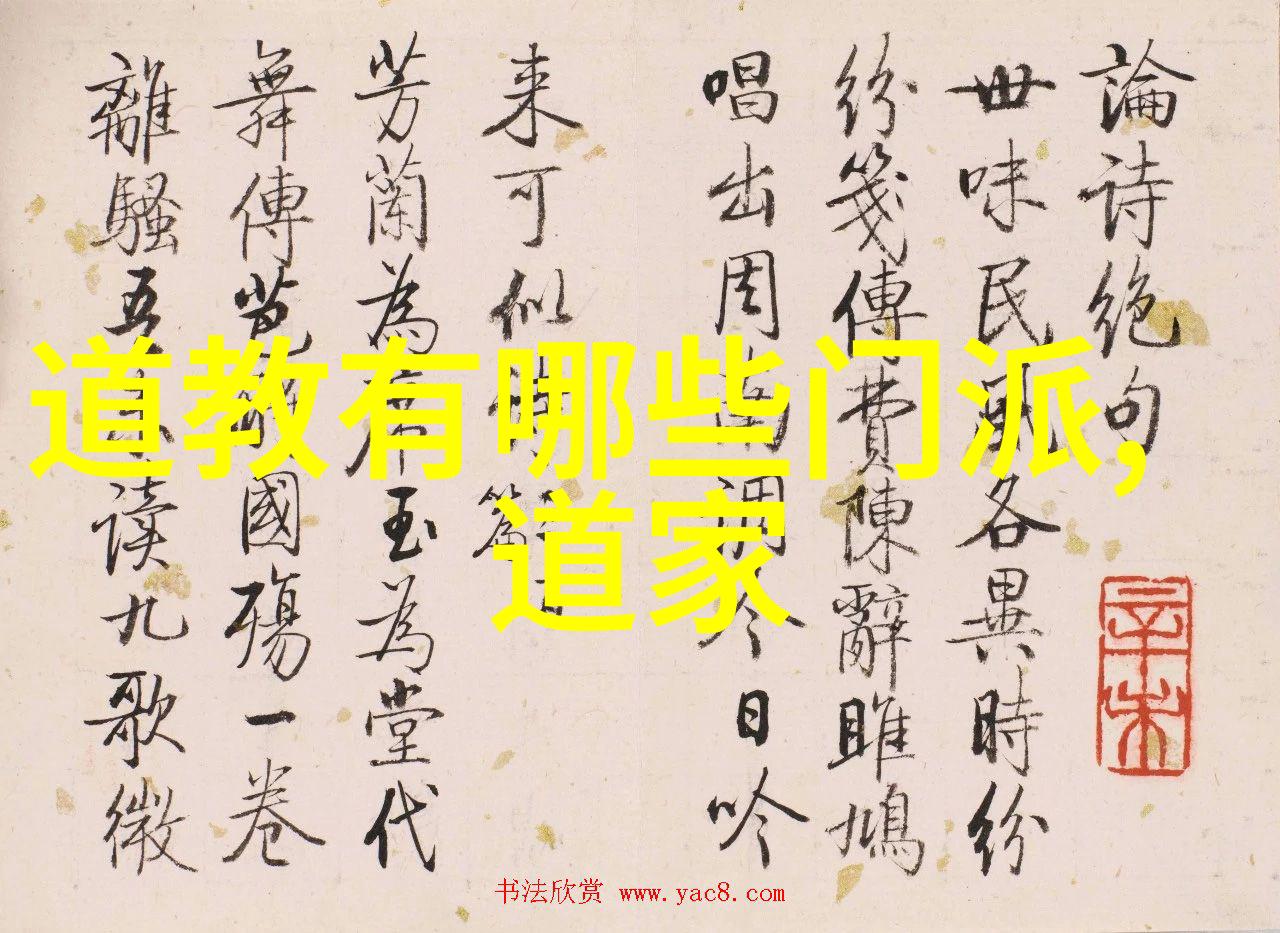 論诗絶句
世味民風各異時紛
紛箋傳費陳辭雎鳩
唱出周南調今日吟
来可似篇
芳蘭為席玉為堂代
舞傳芭國殤一卷
離騷五读九歌微
辛未
道教有哪些门派,
道家
书法欣赏 www.yac8.com